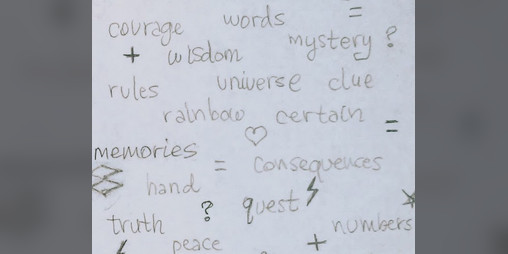 courage words =
+ wisdom mystery ?
rules universe clue
rainbow certain =
memories
= consequences
hand quest
? numbers
truth
peace +